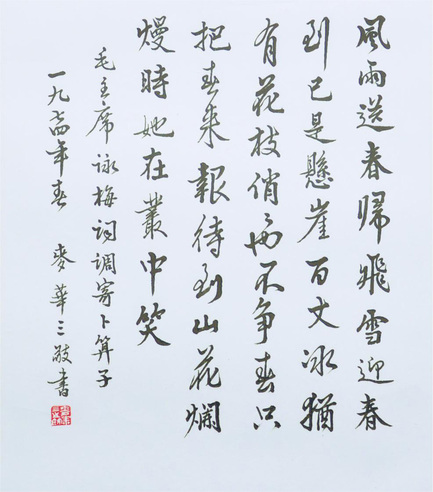 風雨送春歸飛雪迎春
到已是懸崖百丈冰猶
有花枝俏也不爭春只
把春來報待到山花爛
熳時她在叢中笑
毛主席詠梅詞調寄卜算子
一九七四年春 麥華三敬書